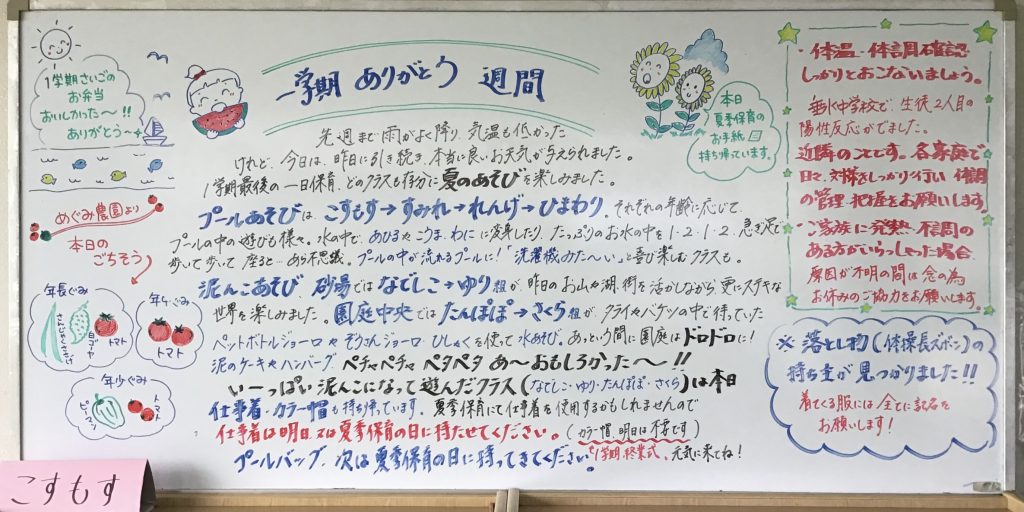 一学期 ありがとう 週間
1学期さいごの
お弁当
おいしかった〜!!
ありがとう〜
先週まで雨がよく降り、気温も低かった
けれど、今日は、昨日に引き続き、本当に良いお天気が与えられました。
1学期最後の一日保育、どのクラスも存分に夏のあそびを楽しみました。
プールあそびは、こすもす→すみれ→れんげ→ひまわり。それぞれの年齢に応じて、
プールの中の遊びも様々。水の中で、あひるやこうま、わにに変身したり、たっぷりのお水の中を1・2・1・2、急ぎ足で
歩いて歩いて座ると…あら不思議。プールの中が流れるプールに!「洗濯機みた〜い」と喜び楽しむクラスも。
泥んこあそび、砂場ではなでしこ→ゆり組が、昨日のお山や湖、街を活かしながら、更にステキな
世界を楽しみました。園庭中央ではたんぽぽ→さくら組が、タライやバケツの中で待っていた
ペットボトルジョーロやぞうさんジョーロ・ひしゃくを使って水あそび。あっという間に園庭はドロドロに!
泥のケーキやハンバーグ、ペチャペチャ ペタペタ あ〜おもしろかった〜!!
い〜っぱい泥んこになって遊んだクラス(なでしこ・ゆり・たんぽぽ・さくら)は本日
仕事着・カラー帽も持ち帰っています。夏季保育にて仕事着を使用するかもしれませんので
仕事着は明日又は夏季保育の日に持たせてください。(カラー帽、明日は不要です)
プールバッグ、次は夏季保育の日に持ってきてください。
1学期終業式、元気に来てね!
めぐみ農園より
本日の
ごちそう
年長ぐみ
さんじゃくささげ
白ゴーヤ
トマト
年中ぐみ
トマト
年少ぐみ
ピーマン
トマト
本日
夏季保育の
お手紙
持ち帰っています。
・体温・体調確認
しっかりとおこないましょう。
垂水中学校で、生徒2人目の
陽性反応がでました。
近隣のことです。各家庭で
日々、対策をしっかり行い 体調
の管理、把握をお願いします
・ご家族に発熱・不調の
ある方がいらっしゃった場合、
原因が不明の間は念の為
お休みのご協力をお願いします。
※落とし物(体操長ズボン)の
持ち主が見つかりました!!
着てくる服には全てに記名を
お願いします!
こすもす